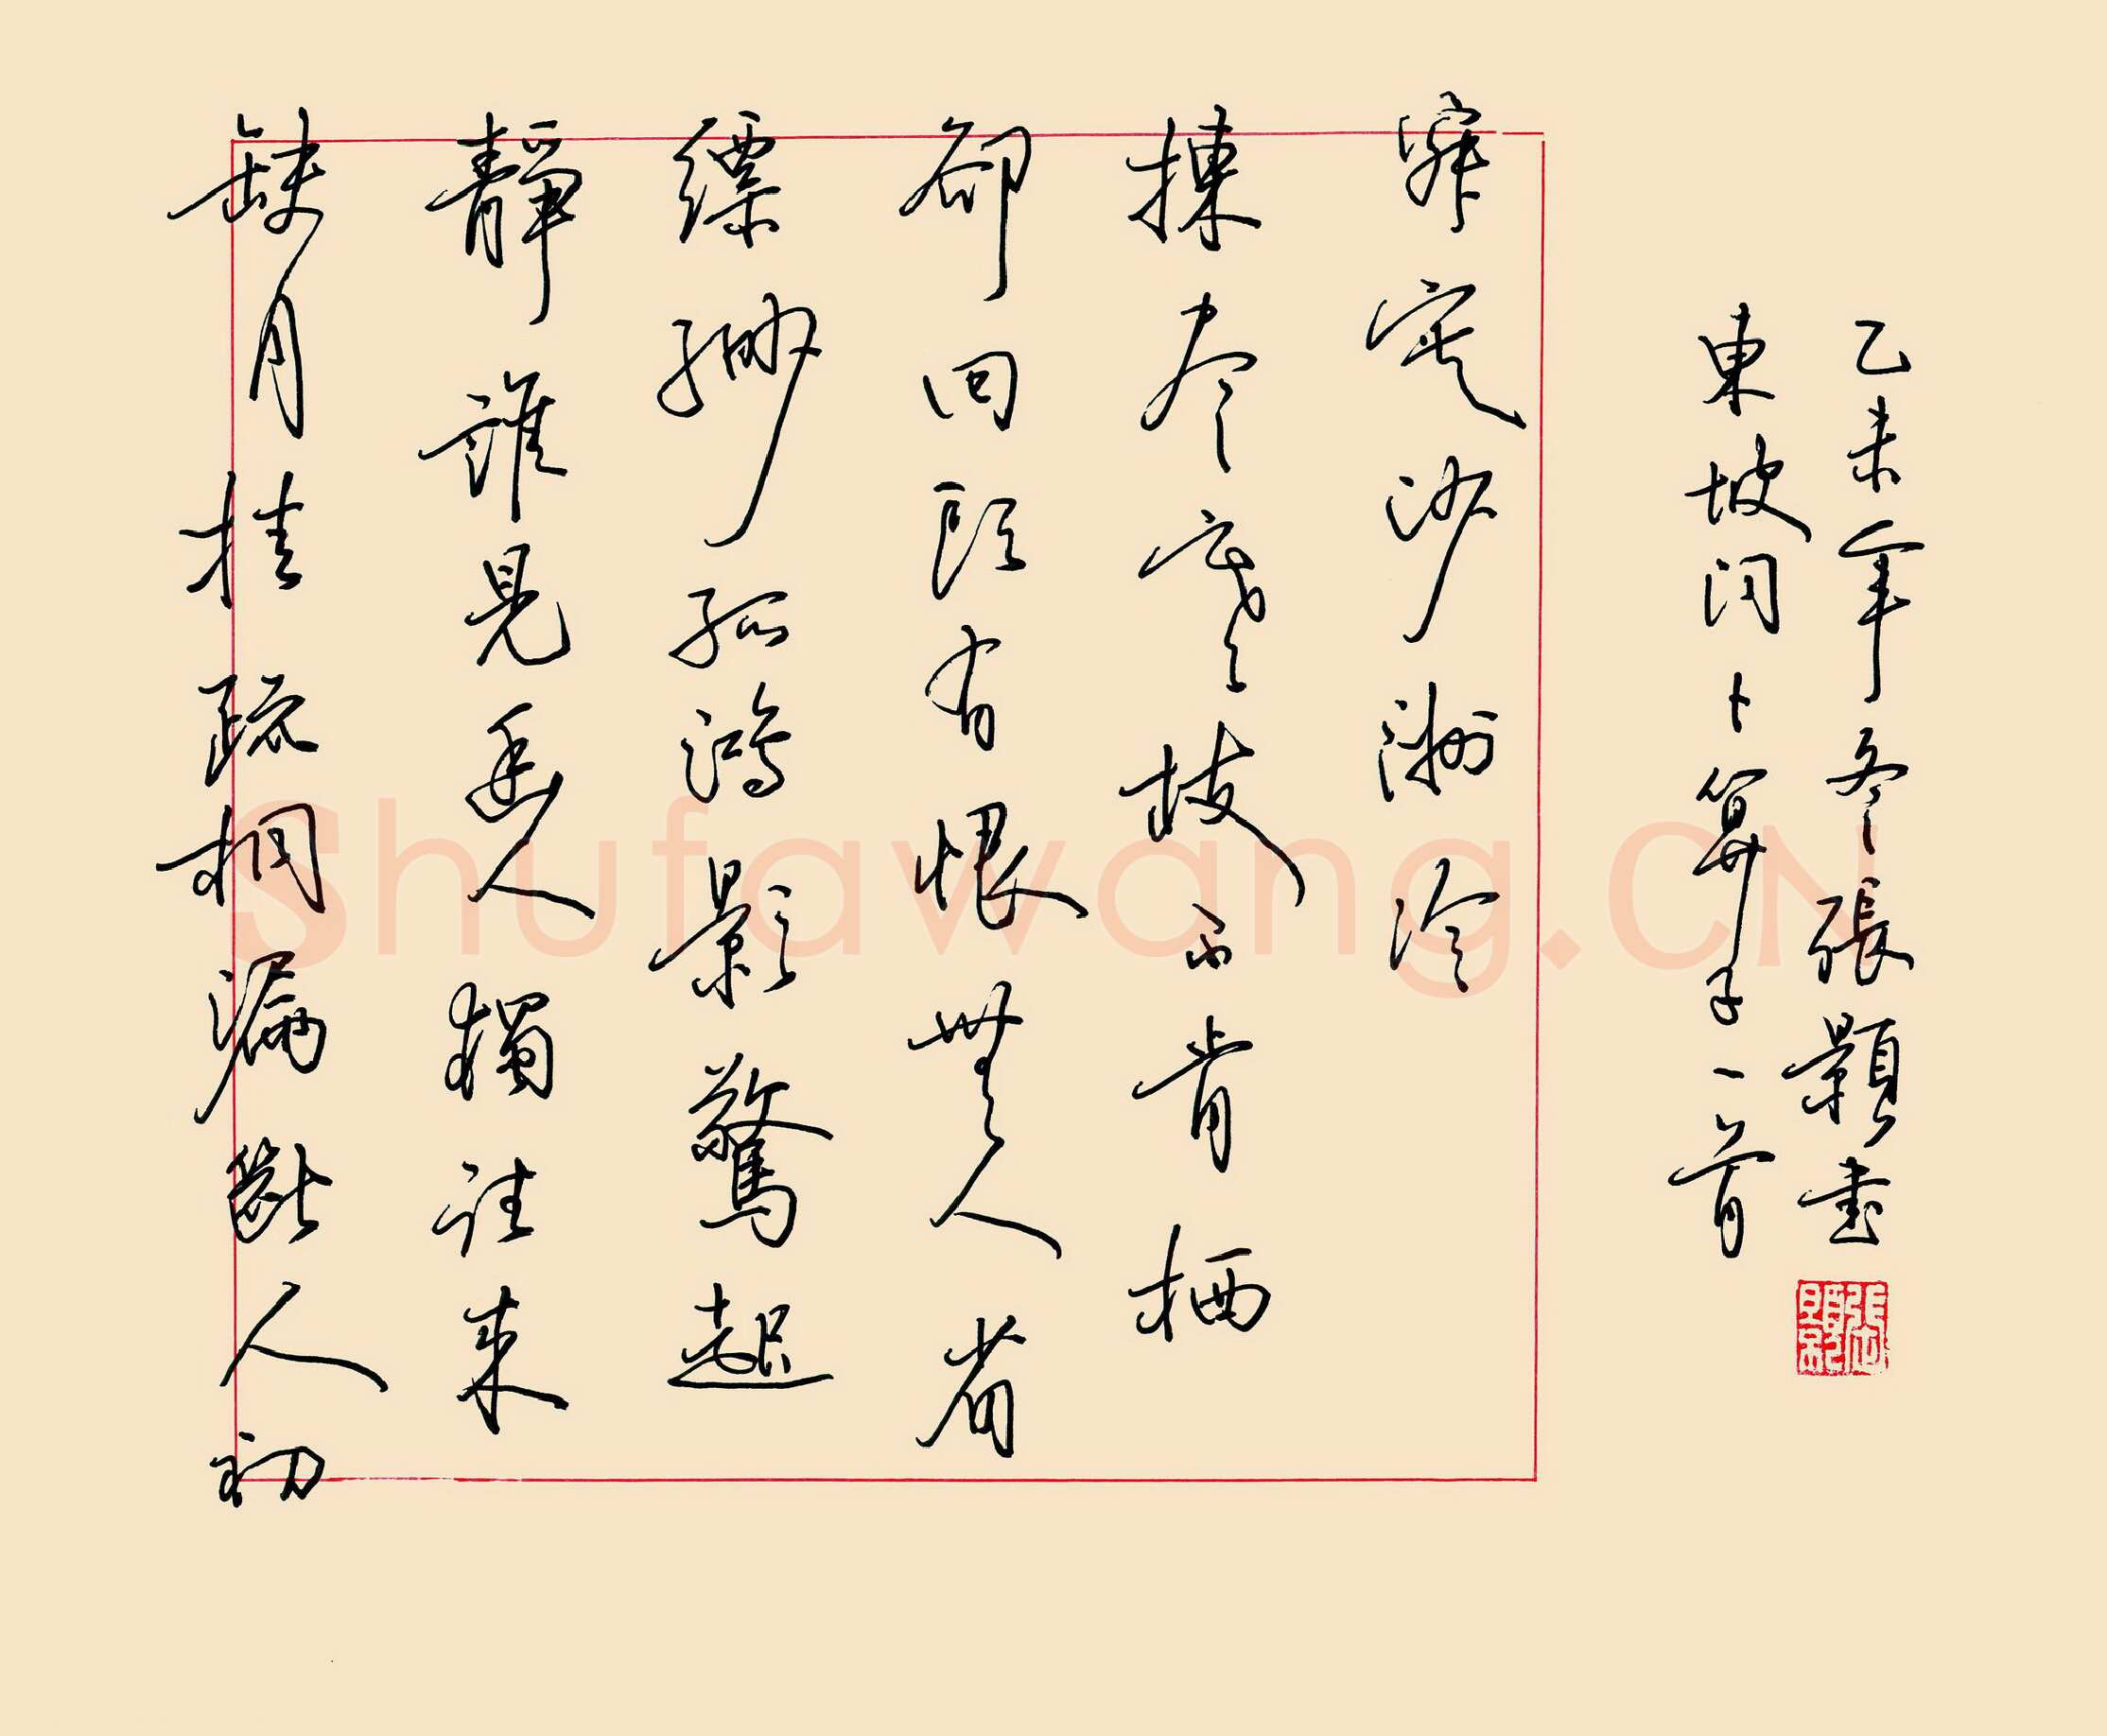 缺月挂疏桐漏斷人初
靜誰見幽人獨往來
縹緲孤鴻影驚起
卻回頭有恨無人省
揀尽寒枝不肯栖
寂寞沙洲冷
東坡詞卜算子一首
乙未年冬張顥書
Shufawang.CN